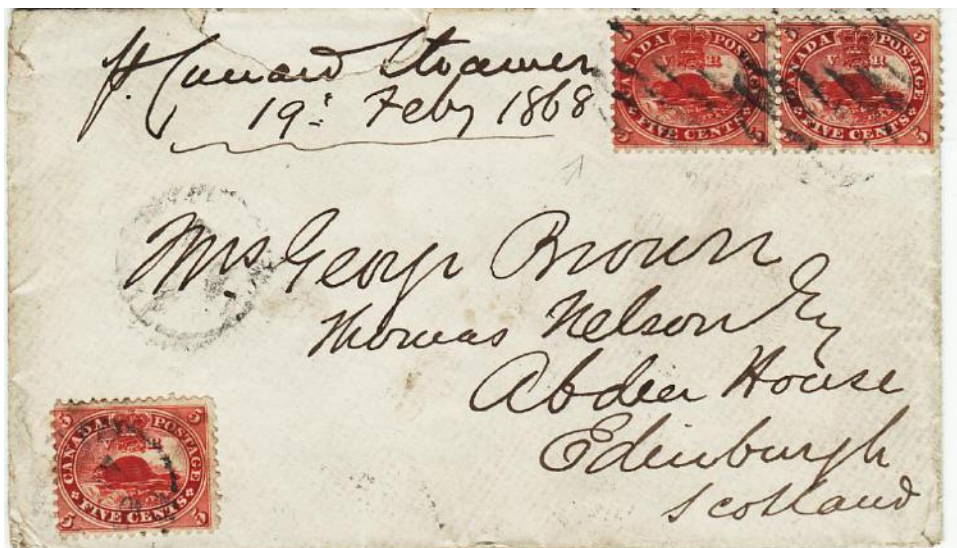 p. Cunard Steamer
19: Feby 1868
CANADA POSTAGE
5 5
V R
FIVE CENTS
5 5
CANADA POSTAGE
5 5
V R
FIVE CENTS
5 5
Mrs. George Brown
Thomas Nelson Esq
Abden House
Edinburgh
Scotland
CANADA POSTAGE
5 5
R
FIVE CENTS
5 5